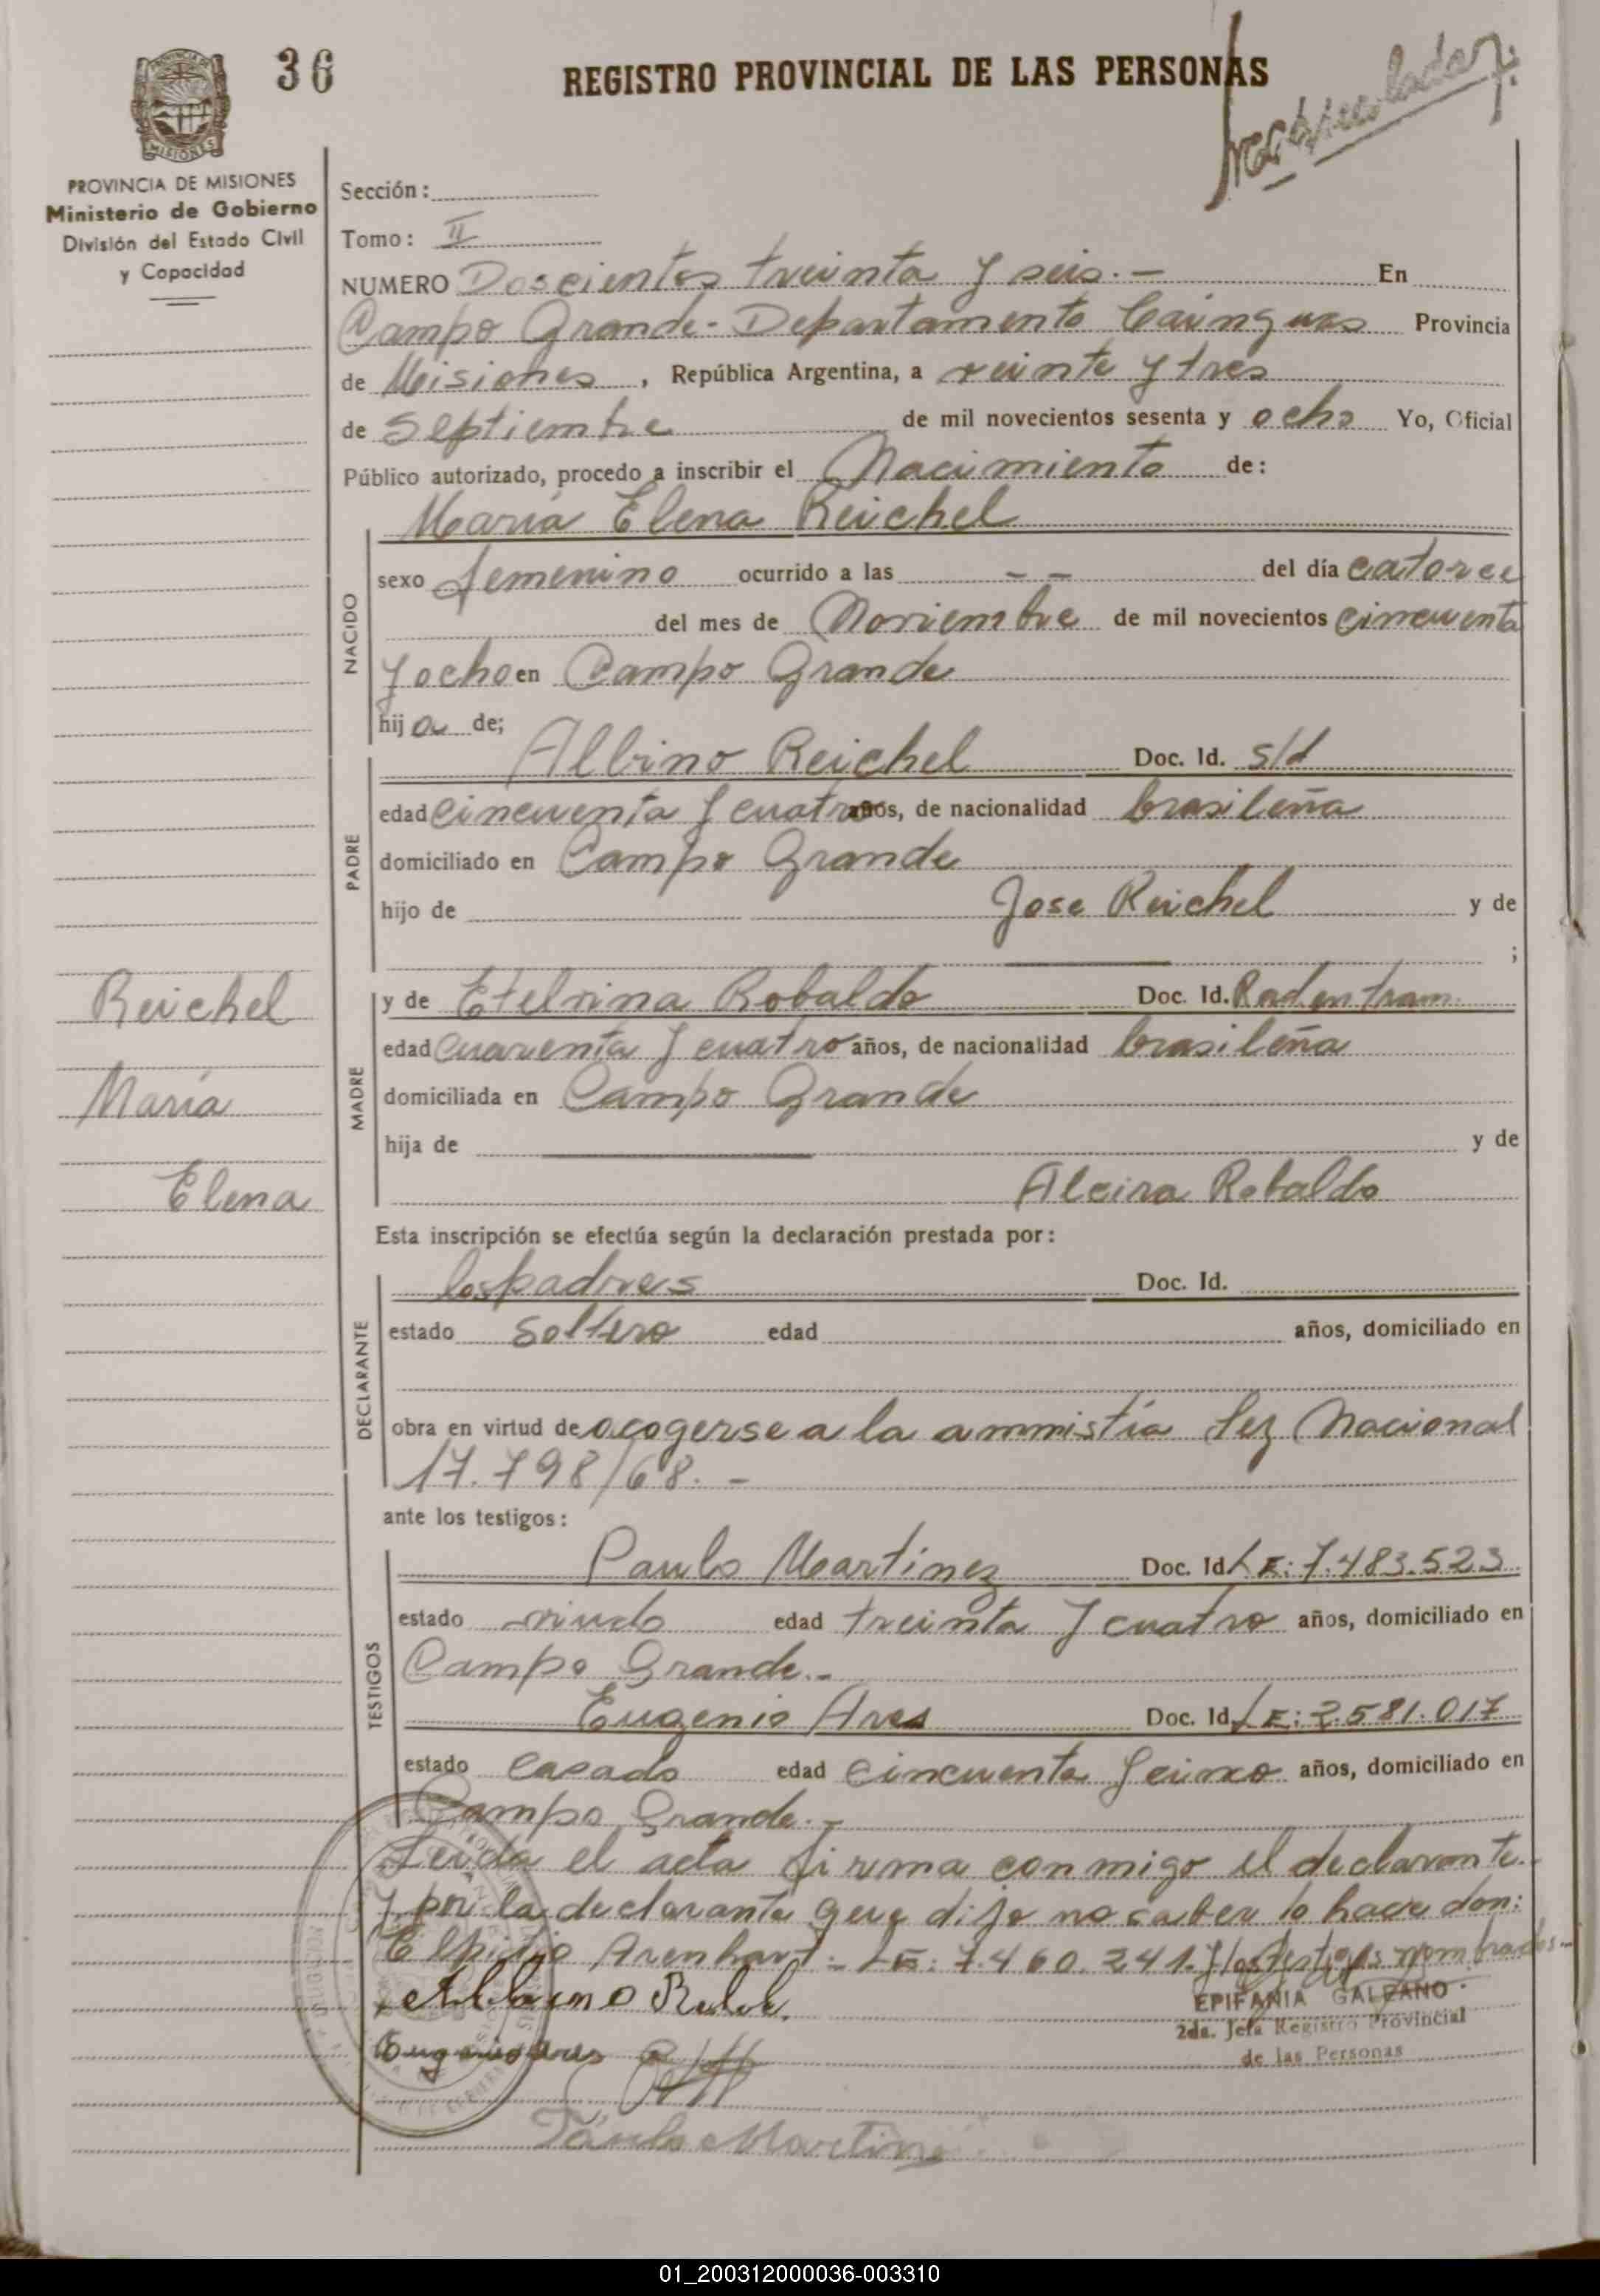 36
REGISTRO PROVINCIAL DE LAS PERSONAS
MISIONES
PROVINCIA DE MISIONES
Ministerio de Gobierno
División del Estado Civil
y Capacidad
Sección:
Tomo: II
NUMERO Doscientos treinta y seis.- En
Campo Grande- Departamento Cainguas Provincia
de Misiones, República Argentina, a veinte y tres
de Septiembre de mil novecientos sesenta y ocho Yo, Oficial
Público autorizado, procedo a inscribir el Nacimiento de:
María Elena Reichel
NACIDO
sexo femenino ocurrido a las - - del día catorce
del mes de Noviembre de mil novecientos cincuenta
y ocho en Campo Grande
hija de;
PADRE
Albino Reichel Doc. Id. s/d
edad cincuenta y cuatro años, de nacionalidad brasileña
domiciliado en Campo Grande
hijo de Jose Reichel y de
;
MADRE
y de Etelvina Robaldo Doc. Id. Rad en tram.
edad cuarenta y cuatro años, de nacionalidad brasileña
domiciliada en Campo Grande
hija de y de
Alcira Robaldo
Reichel
María
Elena
Esta inscripción se efectúa según la declaración prestada por:
DECLARANTE
los padres Doc. Id.
estado soltero edad años, domiciliado en
obra en virtud de acogerse a la ammistía Ley Nacional
17.798/68.-
ante los testigos:
TESTIGOS
Paulo Martinez Doc. Id. LE: 7.483.523
estado viudo edad treinta y cuatro años, domiciliado en
Campo Grande.-
Eugenio Ares Doc. Id. LE: 2.581.017
estado casado edad cincuenta y cinco años, domiciliado en
Campo Grande.-
Leida el acta firma conmigo el declarante.
y por la declarante que dijo no saber lo hace don:
Elpidio Arenhart.- LE: 7.460.241. y los testigos nombrados.-
Albino
EPIFANIA GALEANO
2da. Jefa Registro Provincial
de las Personas
Eugenio Ares
Paulo Martinez
01_200312000036-003310